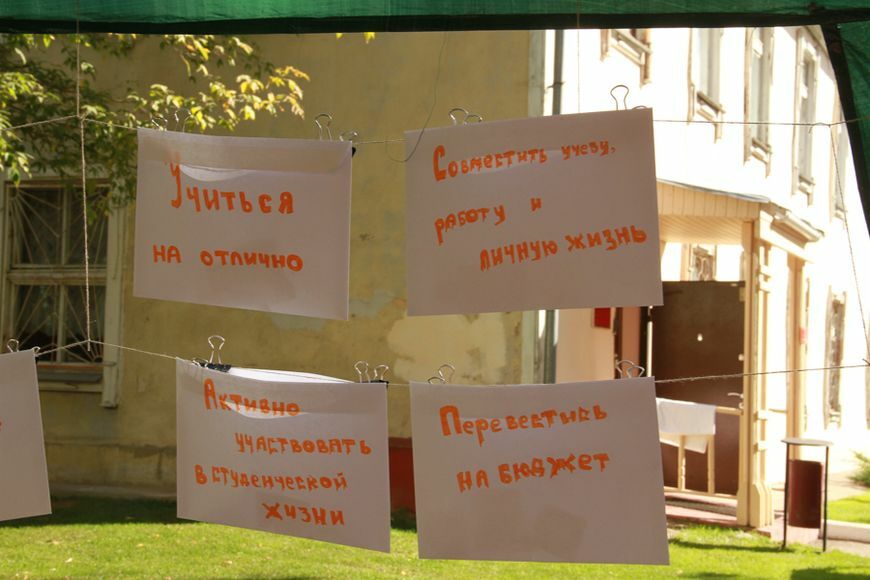 Учиться
на отлично
Совместить учебу,
работу и
личную жизнь
Активно
участвовать
в студенческой
жизни
Перевестись
на бюджет